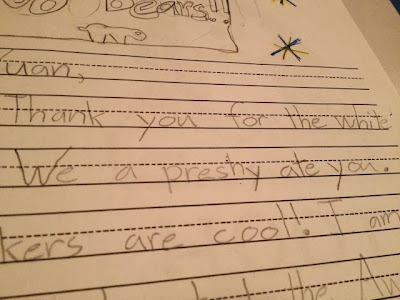 Go Bears!!
Yuan,
Thank you for the white
We a preshy ate you.
kers are cool! I am
the Au